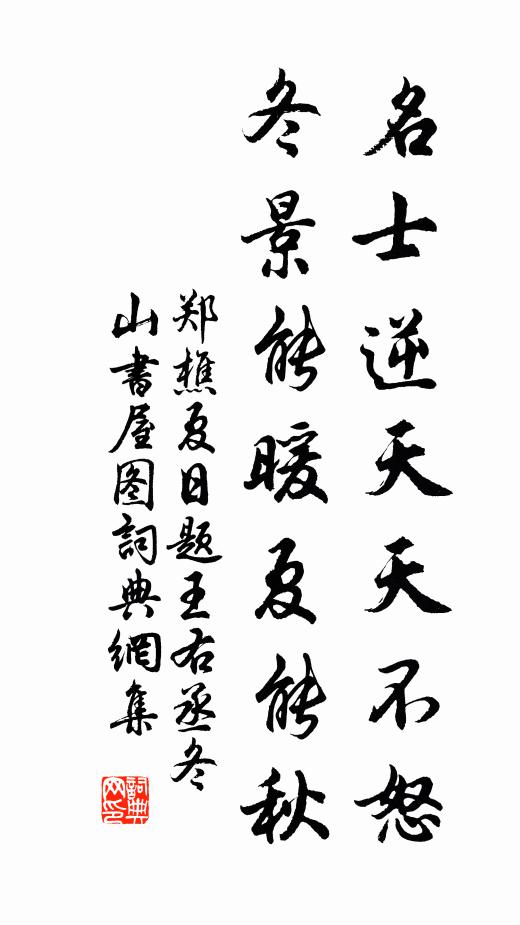 名士逆天天不怒
冬景能暖夏能秋
郑樵夏日题王右丞冬
山书屋图詞典網集
詞典网印